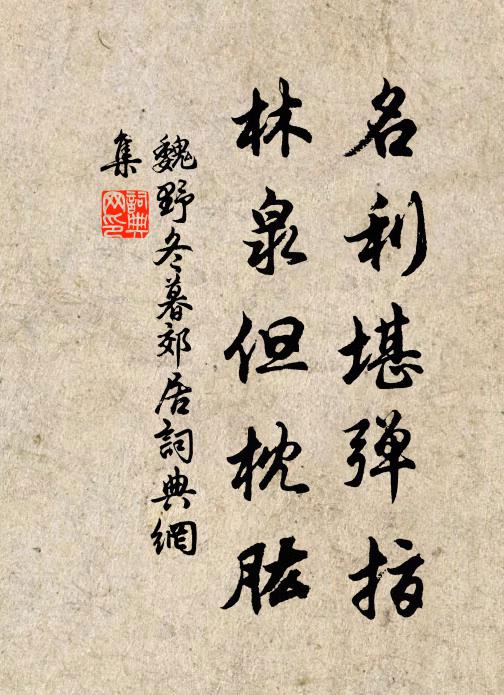 名利堪弹指
林泉但枕肱
魏野冬暮郊居詞典網
集
詞典
网印